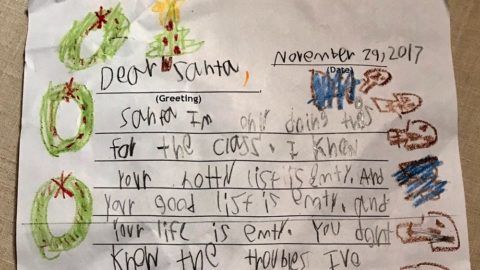 November 29, 2017
(Date)
Dear Santa,
(Greeting)
Santa Im only doing this
for the class. I know
your notty list is emty. And
your good list is emty. And
your life is emty. You dont
know the troubles I've